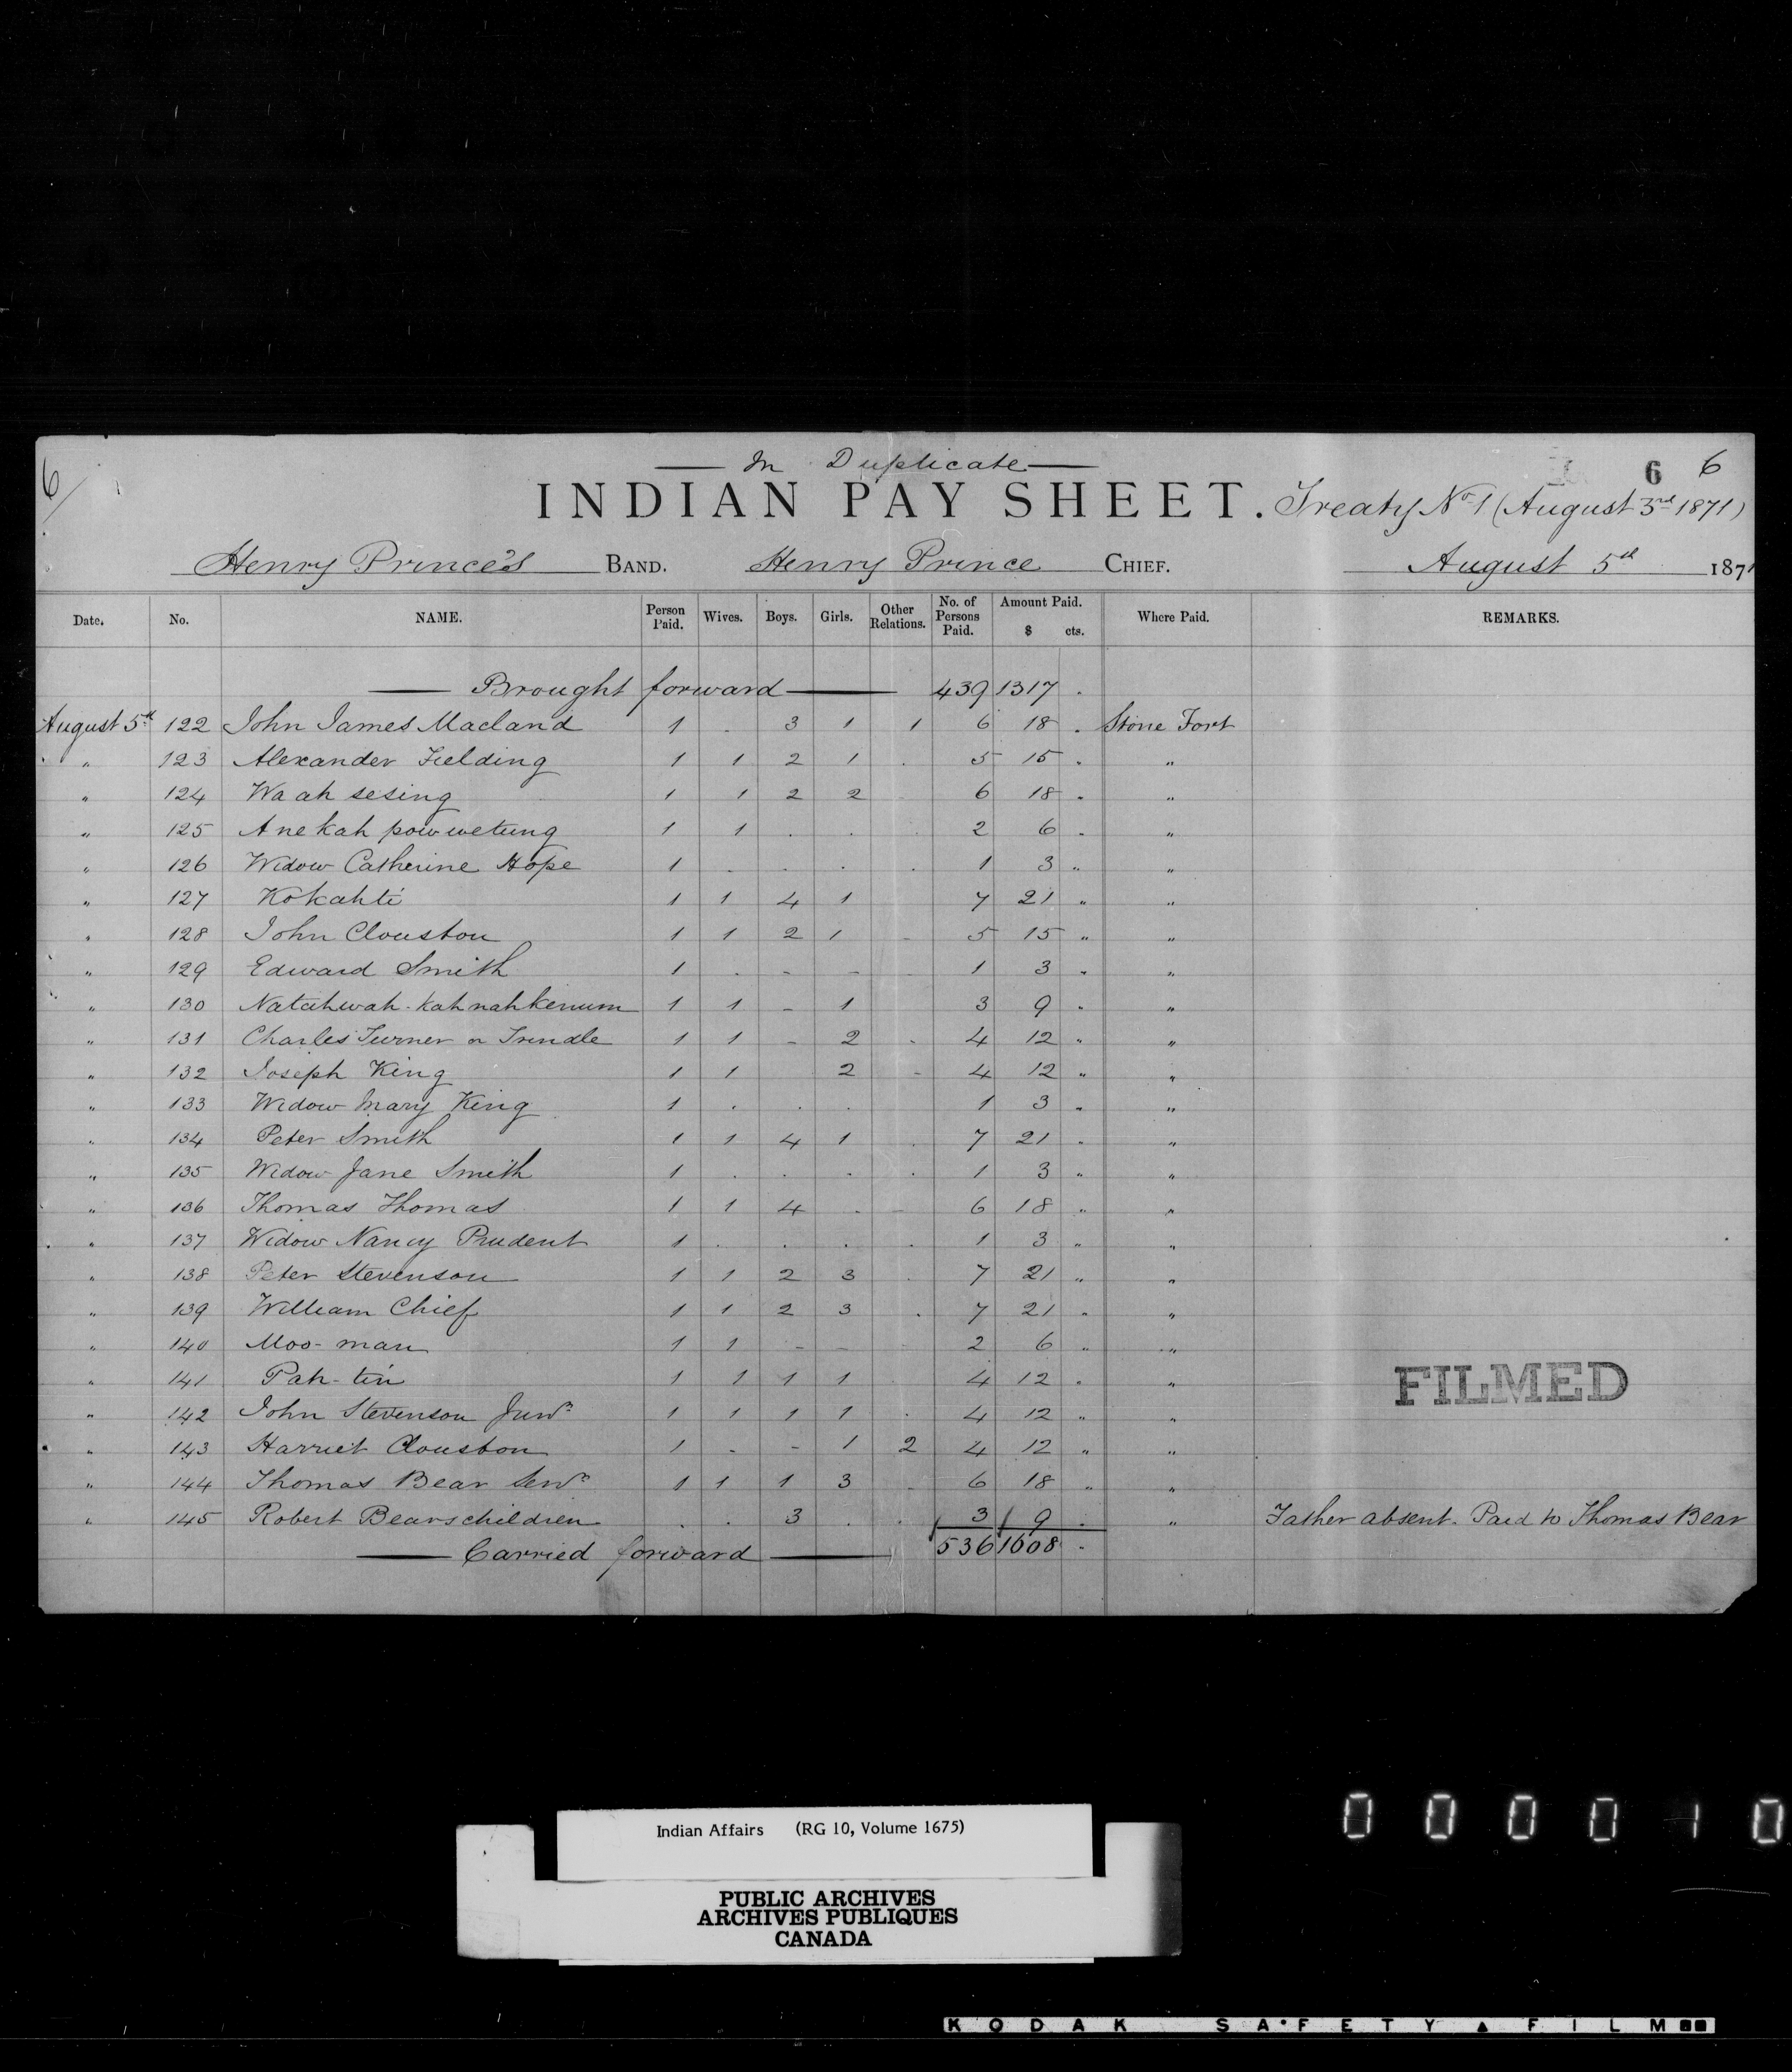 6
In Duplicate
6 6
INDIAN PAY SHEET. Treaty No 1 (August 3rd 1871)
Henry Prince's BAND. Henry Prince CHIEF. August 5th 1871
Date. No. NAME. Person Paid. Wives. Boys. Girls. Other Relations. No. of Persons Paid. Amount Paid. $ cts. Where Paid. REMARKS.
Brought forward 439 1317 .
August 5th 122 John James Macland 1 . 3 1 1 6 18 . Stone Fort
" 123 Alexander Fielding 1 1 2 1 . 5 15 . "
" 124 Wa ah sesing 1 1 2 2 6 18 . "
" 125 Ane kah pow wetung 1 1 . . . 2 6 . "
" 126 Widow Catherine Hope 1 . . . . 1 3 " "
" 127 Kokahte 1 1 4 1 7 21 " "
" 128 John Clouston 1 1 2 1 - 5 15 " "
" 129 Edward Smith 1 . - - 1 3 " "
" 130 Natahwah-kahnahkenum 1 1 - 1 3 9 " "
" 131 Charles Turner or Trindle 1 1 - 2 . 4 12 " "
" 132 Joseph King 1 1 2 - 4 12 " "
" 133 Widow Mary King 1 . . . 1 3 " "
" 134 Peter Smith 1 1 4 1 . 7 21 . "
" 135 Widow Jane Smith 1 . . . . 1 3 " "
" 136 Thomas Thomas 1 1 4 . - 6 18 " "
" 137 Widow Nancy Prudent 1 . . . . 1 3 " "
" 138 Peter Stevenson 1 1 2 3 . 7 21 " "
" 139 William Chief 1 1 2 3 . 7 21 " "
" 140 Moo-man 1 1 - - . 2 6 " "
" 141 Pah-tin 1 1 1 1 . 4 12 . "
" 142 John Stevenson Junr 1 1 1 1 . 4 12 " "
" 143 Harriet Clouston 1 - - 1 2 4 12 " "
" 144 Thomas Bear Senr 1 1 1 3 - 6 18 " "
" 145 Robert Bears children . . 3 . . 3 9 . " Father absent. Paid to Thomas Bear
Carried forward 536 1608 .
FILMED
Indian Affairs (RG 10, Volume 1675)
PUBLIC ARCHIVES
ARCHIVES PUBLIQUES
CANADA
000010
KODAK SAFETY FILM